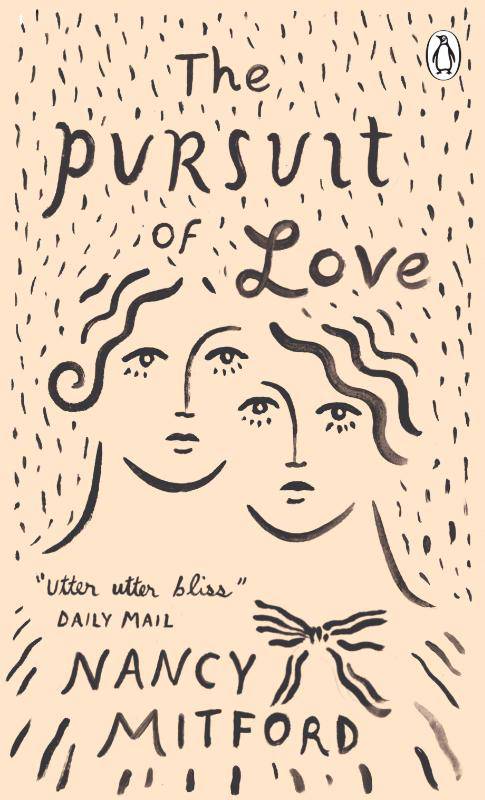 The
PURSUIT
OF Love
"utter utter bliss"
DAILY MAIL
NANCY
MITFORD